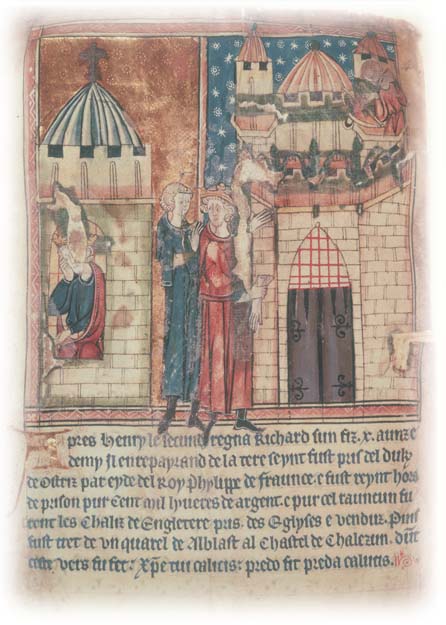 Apres Henry le secund regna Richard sun fiz .x. aunz e
demy Il en repayrand de la tere seynt fust pris del duk
de Ostriz par eyde del Roy Phylippe de fraunce. e fust reynt hors
de prison pur Cent myl lyveres de argent. e pur cel raunceun fu
rent les Chaliz de Engletere pris. des Eglyses e venduz. Puis
fust tret de un quarel de Alblast al Chastel de Chalezun. dunt
ceste vers fu fet: xp̄e tui calicis: predo fit preda calucis.